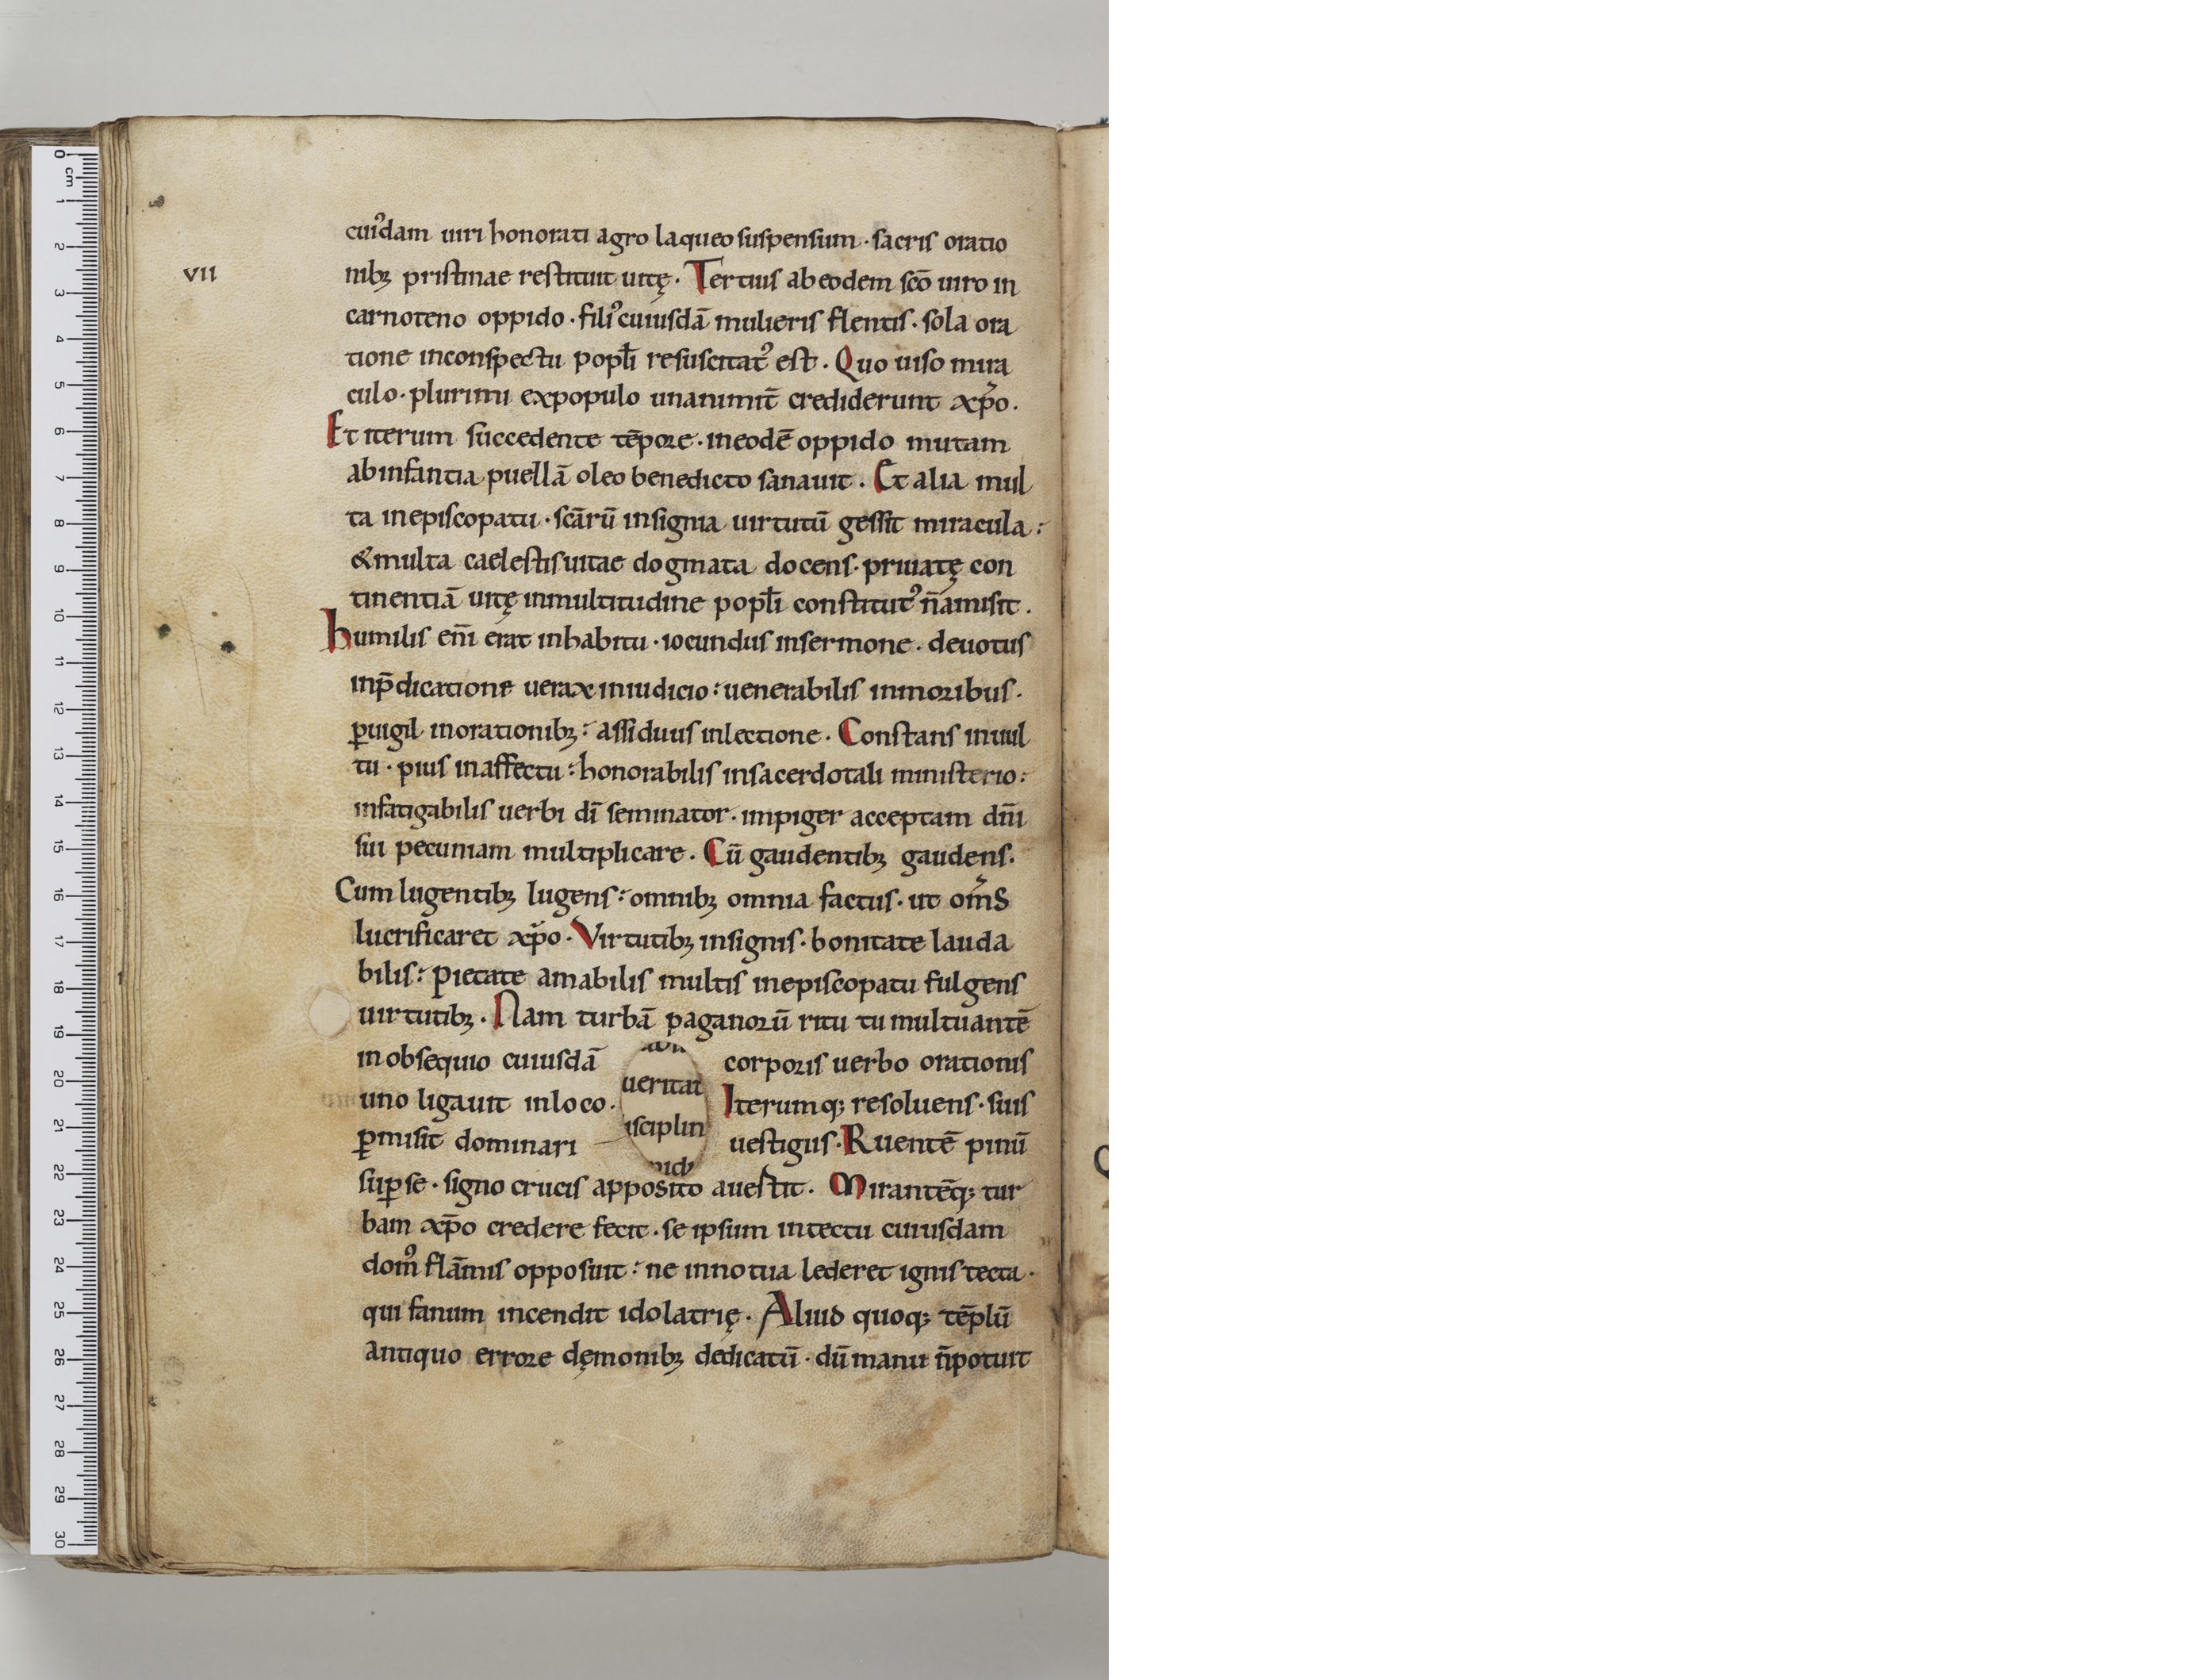 cuiꝰdam uiri honorati agro laqueo suspensum · sacris oratio
VII
nibꝫ pristinae restituit uitę . Tertius ab eodem scō uiro in
carnoteno oppido · filiꝰ cuiusdā mulieris flentis · sola ora
tione inconspectu popl̄i resuscitatꝰ est . Quo uiso mira
culo · plurimi expopulo unanimit̄ crediderunt xp̄o .
Et iterum succedente tēpore · ineodē oppido mutam
abinfantia puellā oleo benedicto sanauit . Et alia mul
ta inepiscopatu · scārū insignia uirtutū gessit miracula :
& multa caelestis uitae dogmata docens · priuatę con
tinentiā uitę inmultitudine popl̄i constitutꝰ n̄ amisit .
humilis eni̅ erat inhabitu · iocundus insermone · deuotus
inp̄dicatione uerax iniudicio : uenerabilis inmoribus .
ꝑuigil inorationibꝫ : assiduus inlectione . Constans inuul
tu · pius inaffectu : honorabilis insacerdotali ministerio :
infatigabilis uerbi dī seminator · impiger acceptam dn̄i
sui pecuniam multiplicare . Cū gaudentibꝫ gaudens .
Cum lugentibꝫ lugens : omnibꝫ omnia factus · ut om̄s
lucrificaret xp̄o . Virtutibꝫ insignis · bonitate lauda
bilis : pietate amabilis multis inepiscopatu fulgens
uirtutibꝫ . Nam turbā paganorū ritu tumultuantē
in obsequio cuiusdā corporis uerbo orationis
ueritat
uno ligauit inloco . Iterumqꝫ resoluens · suis
isciplin
ꝑmisit dominari uestigiis . Ruentē pinū
suꝑ se · signo crucis apposito auestit . Mirantēqꝫ tur
bam xp̄o credere fecit · se ipsum intectu cuiusdam
domꝰ flāmis opposuit : ne innotua lederet ignis tecta ·
qui fanum incendit idolatrię . Aliud quoqꝫ tēplū
antiquo errore dęmonibꝫ dedicatū · dū manu n̄ potuit